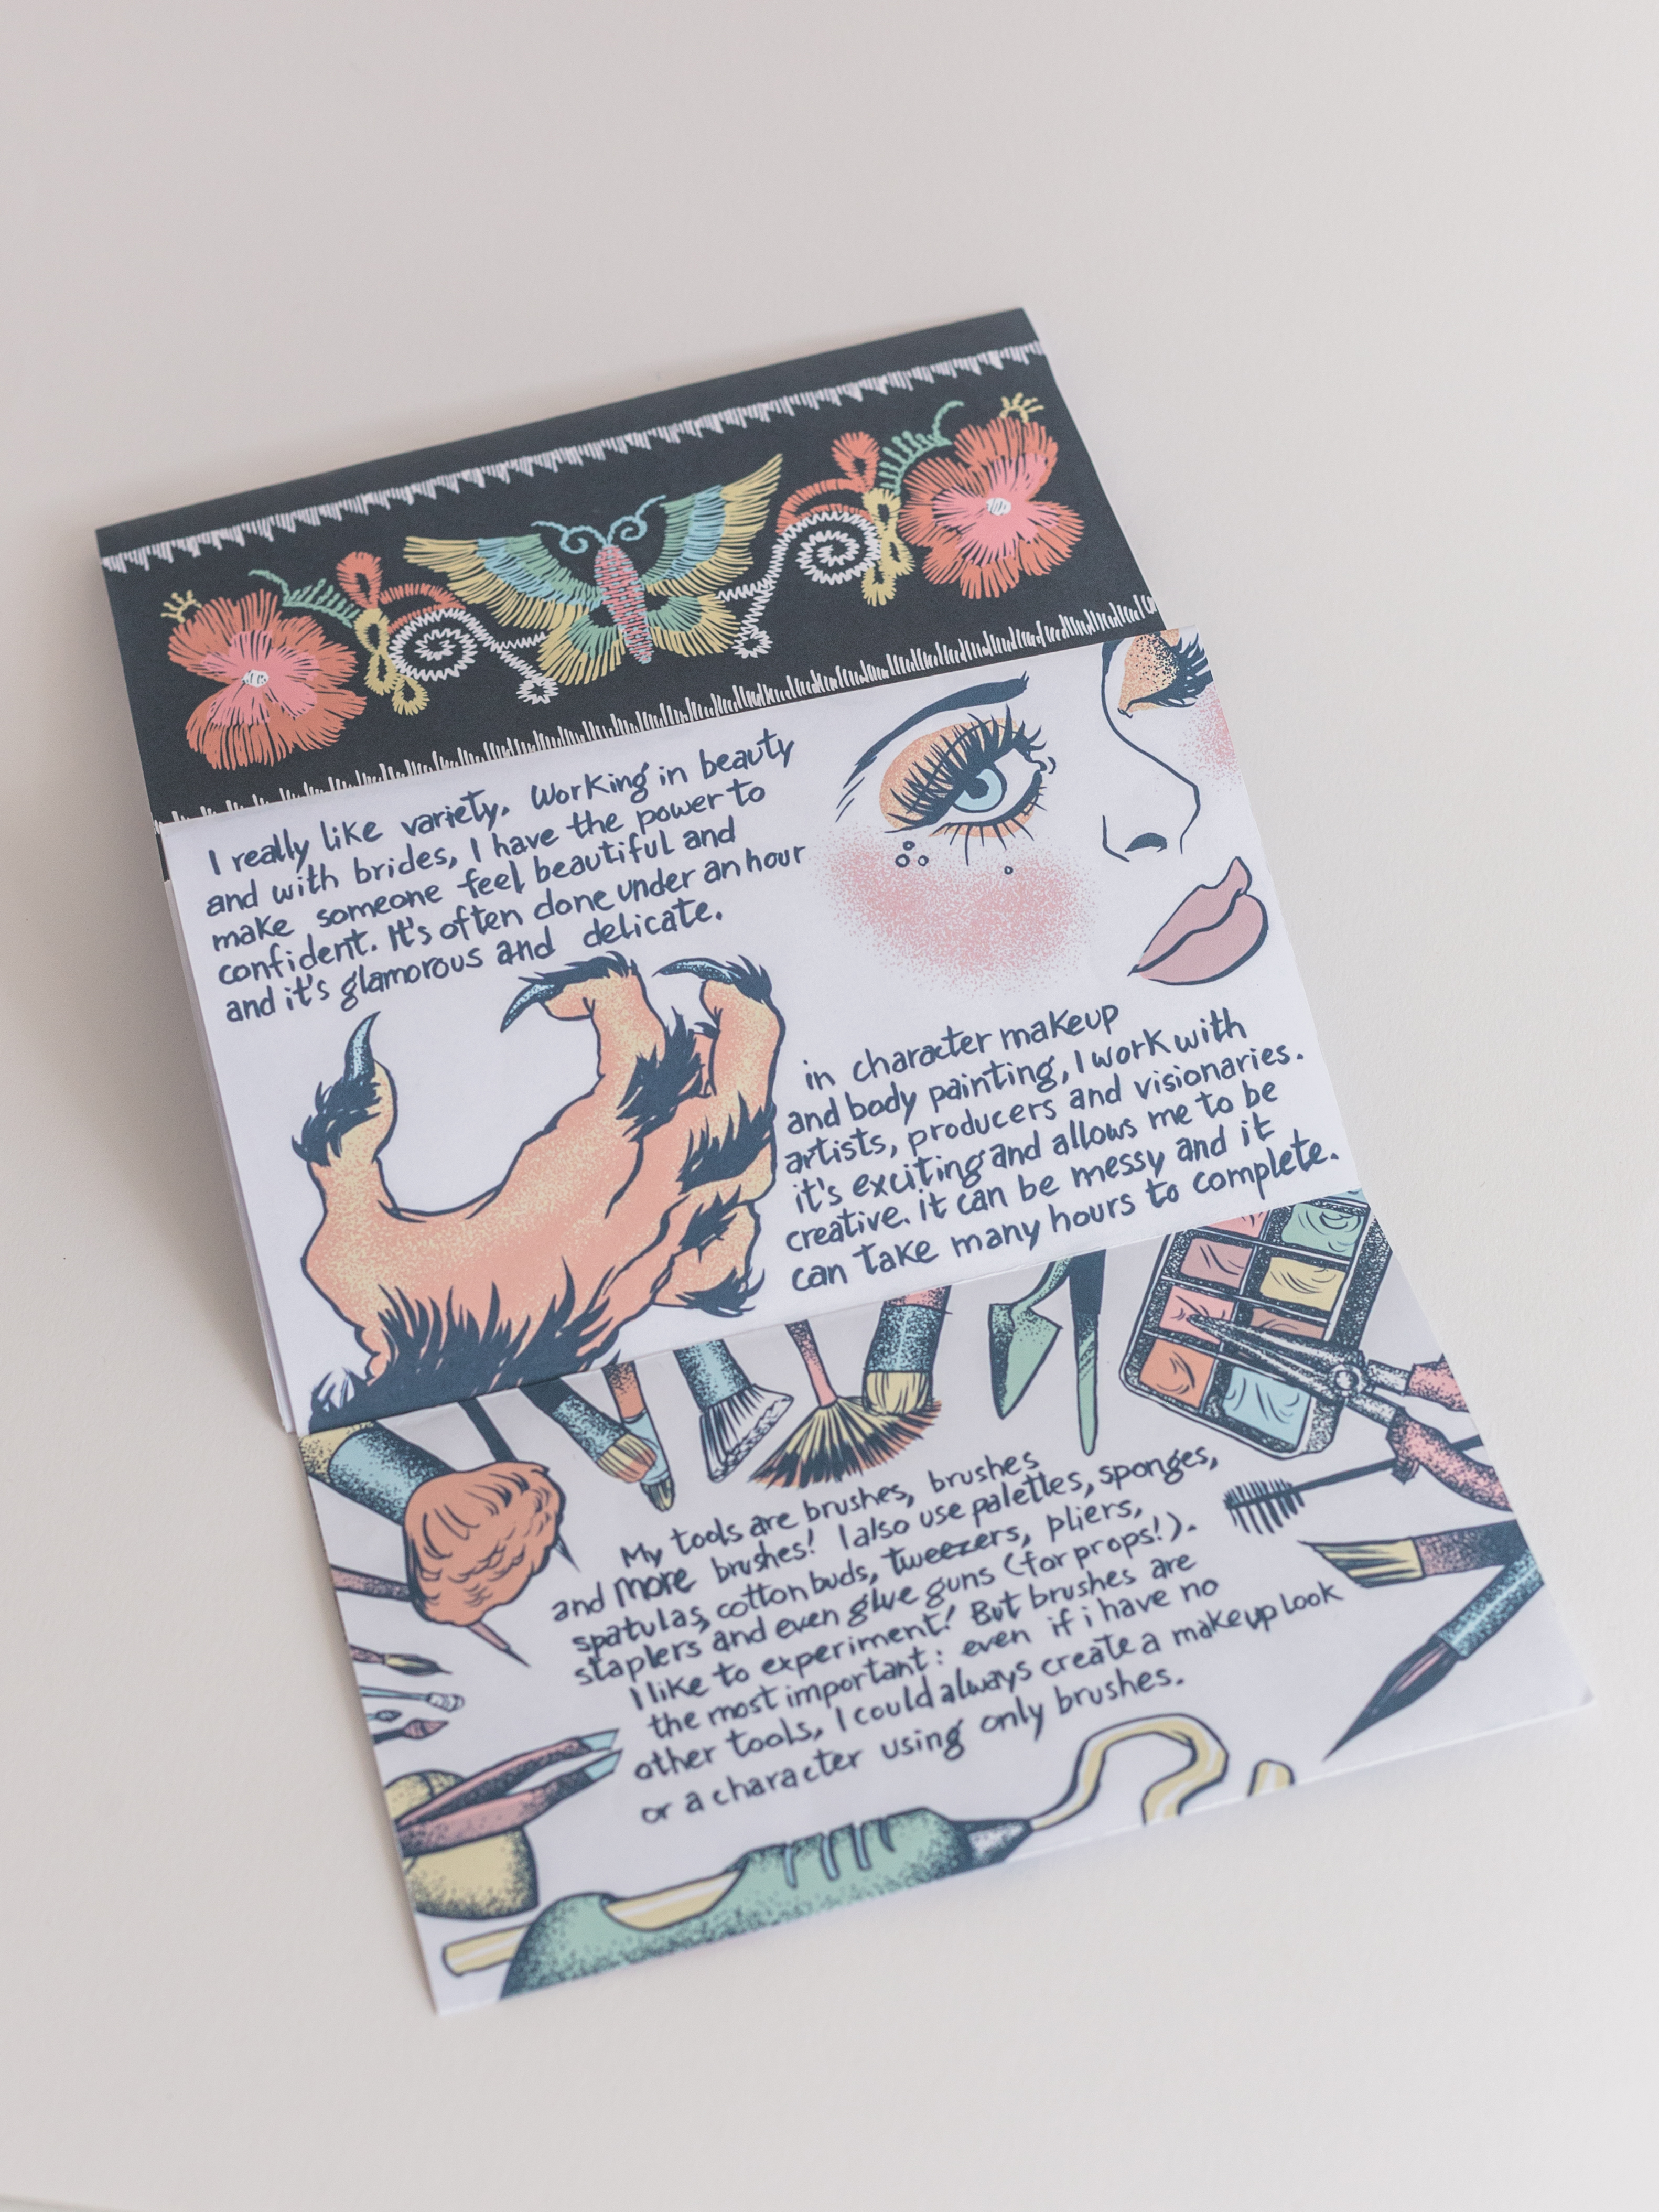 I really like variety. Working in beauty
and with brides, I have the power to
make someone feel beautiful and
confident. It's often done under an hour
and it's glamorous and delicate.
in character makeup
and body painting, I work with
artists, producers and visionaries.
it's exciting and allows me to be
creative. it can be messy and it
can take many hours to complete.
My tools are brushes, brushes
and more brushes! I also use palettes, sponges,
spatulas, cotton buds, tweezers, pliers,
staplers and even glue guns (for props!).
I like to experiment! But brushes are
the most important: even if i have no
other tools, I could always create a makeup look
or a character using only brushes.